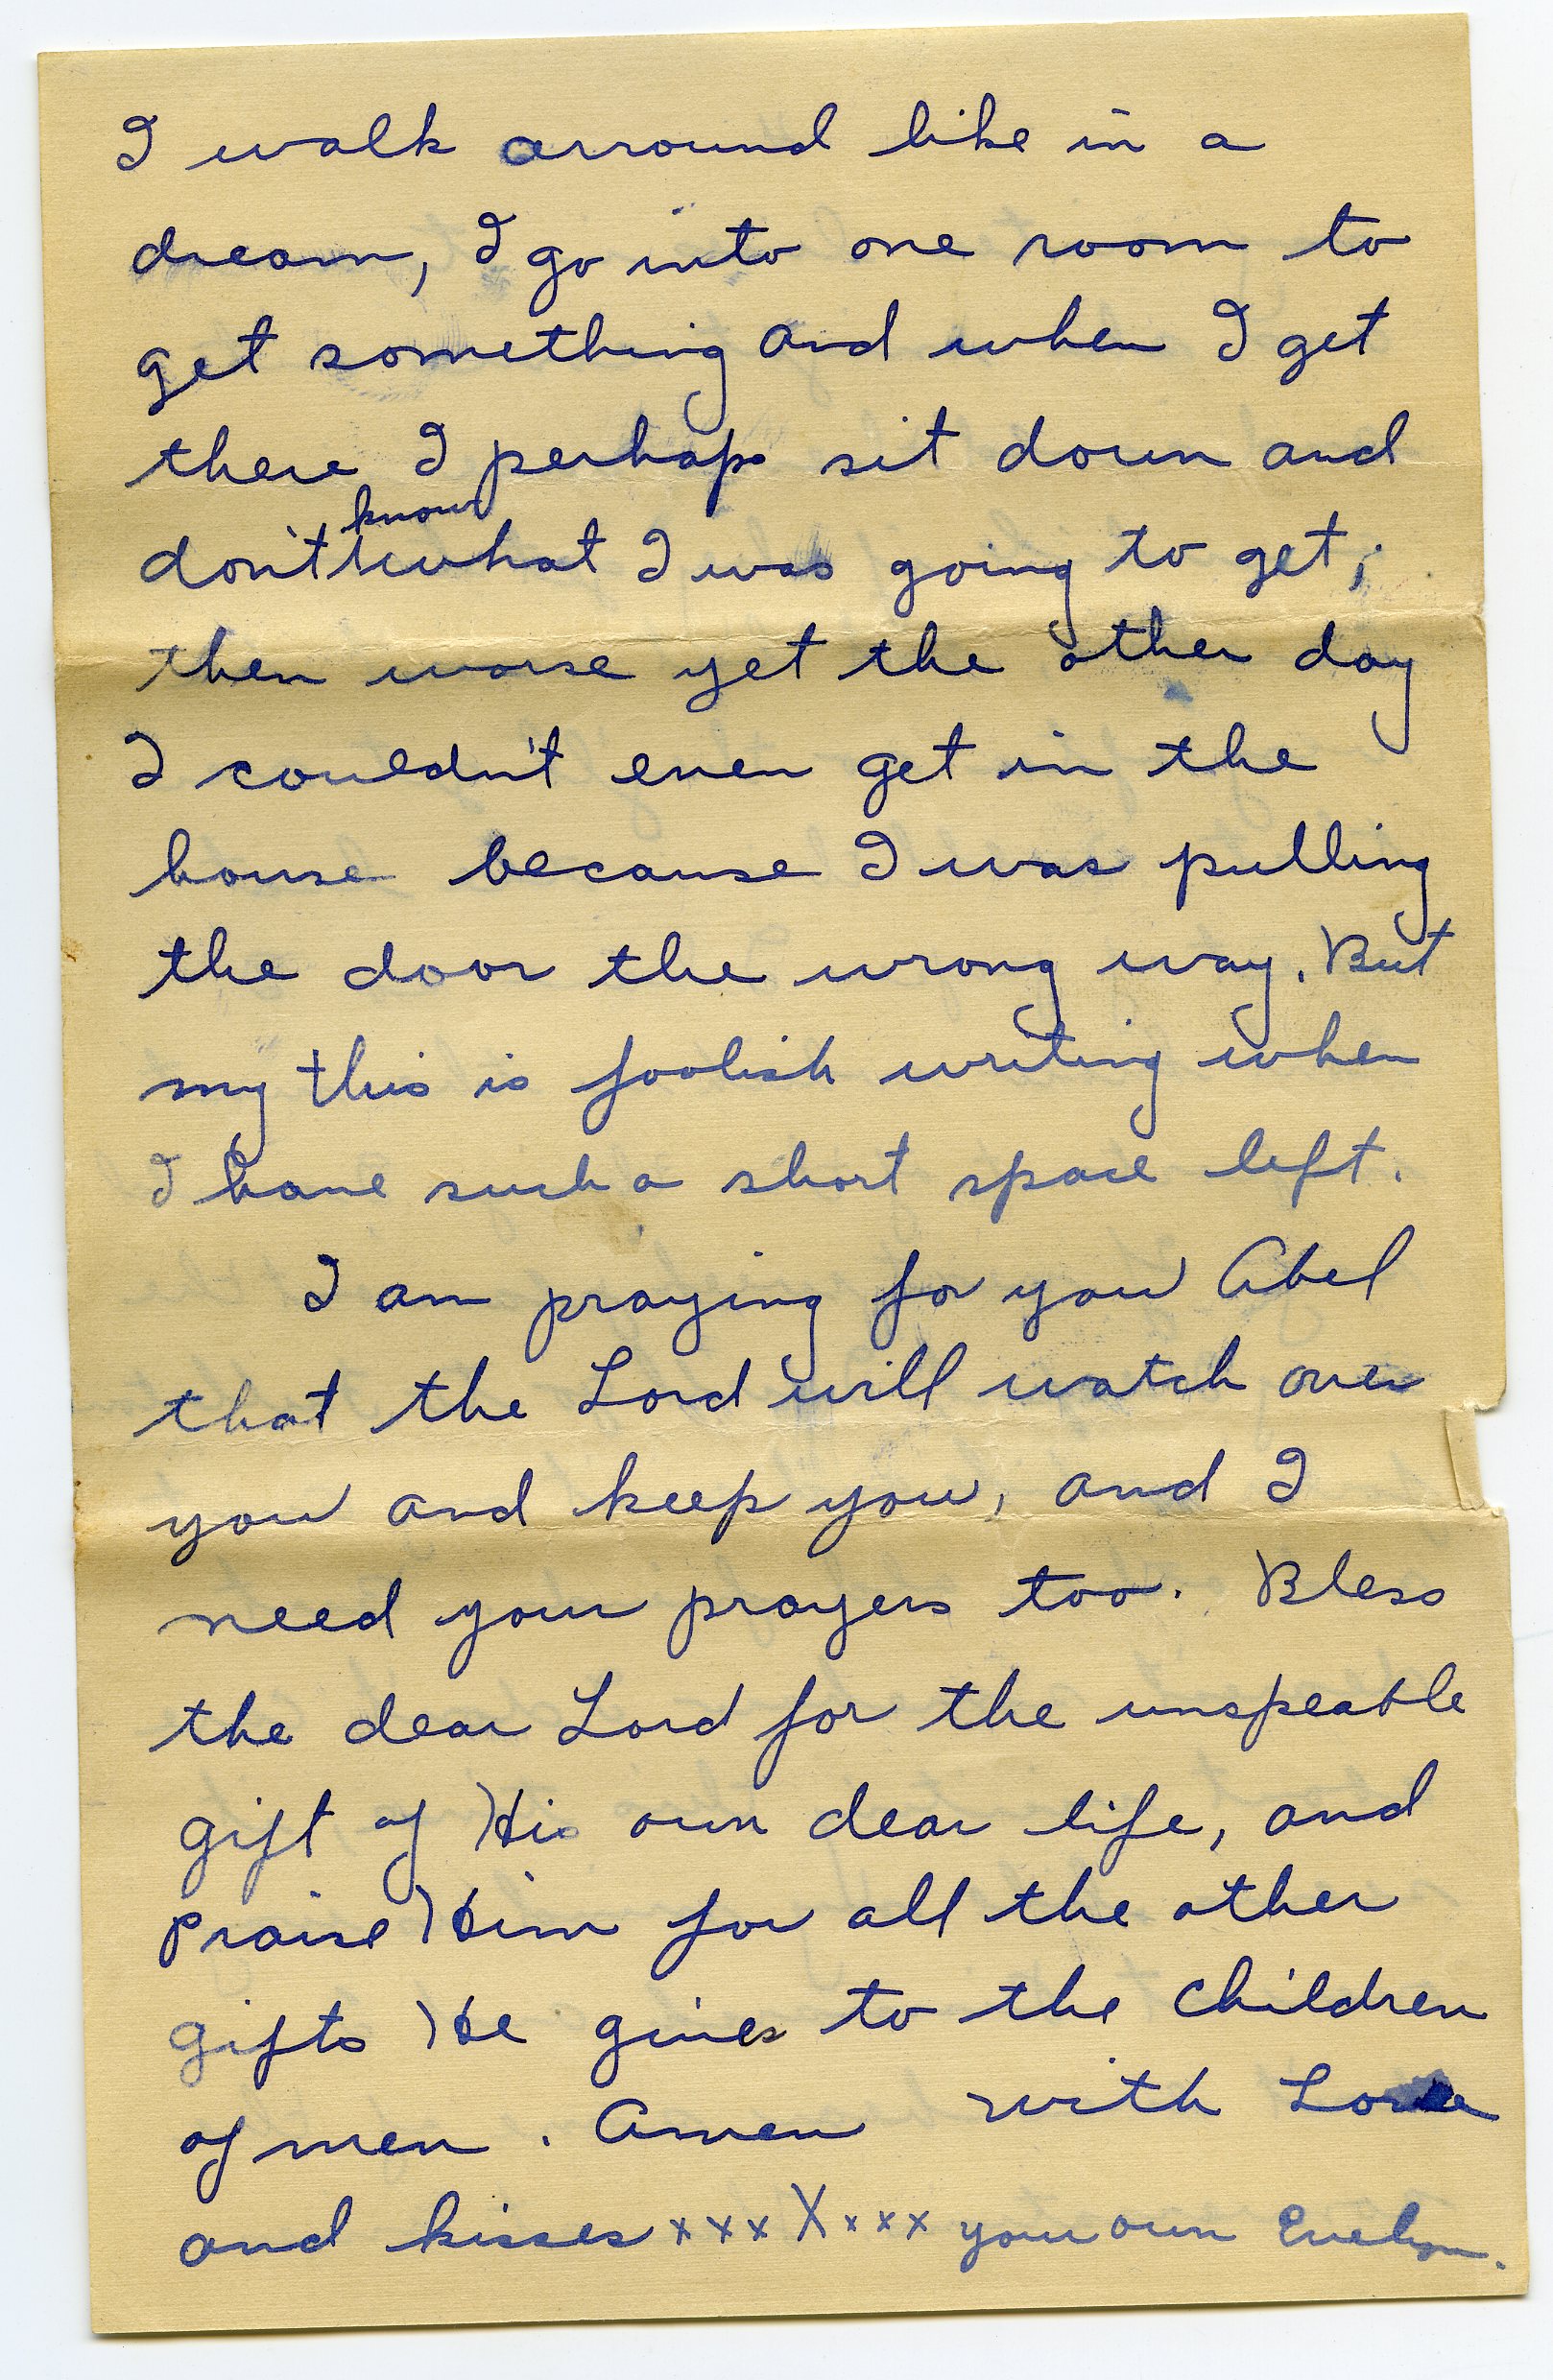 I walk arround like in a
dream, I go into one room to
get something and when I get
there I perhaps sit down and
know
don't what I was going to get;
then worse yet the other day
I couldn't even get in the
house because I was pulling
the door the wrong way. But
my this is foolish writing when
I have such a short space left.
I am praying for you Abel
that the Lord will watch over
you and keep you, and I
need your prayers too. Bless
the dear Lord for the unspeable
gift of His own dear life, and
praise Him for all the other
gifts He gives to the children
of men. Amen with Love
and kisses xxxXxxx your own Evelyn.